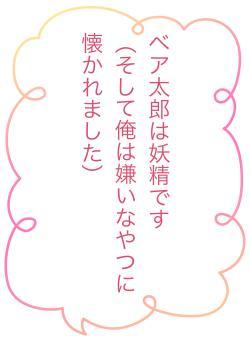 ベア太郎は妖精です
（そして俺は嫌いなやつに
懐かれました）